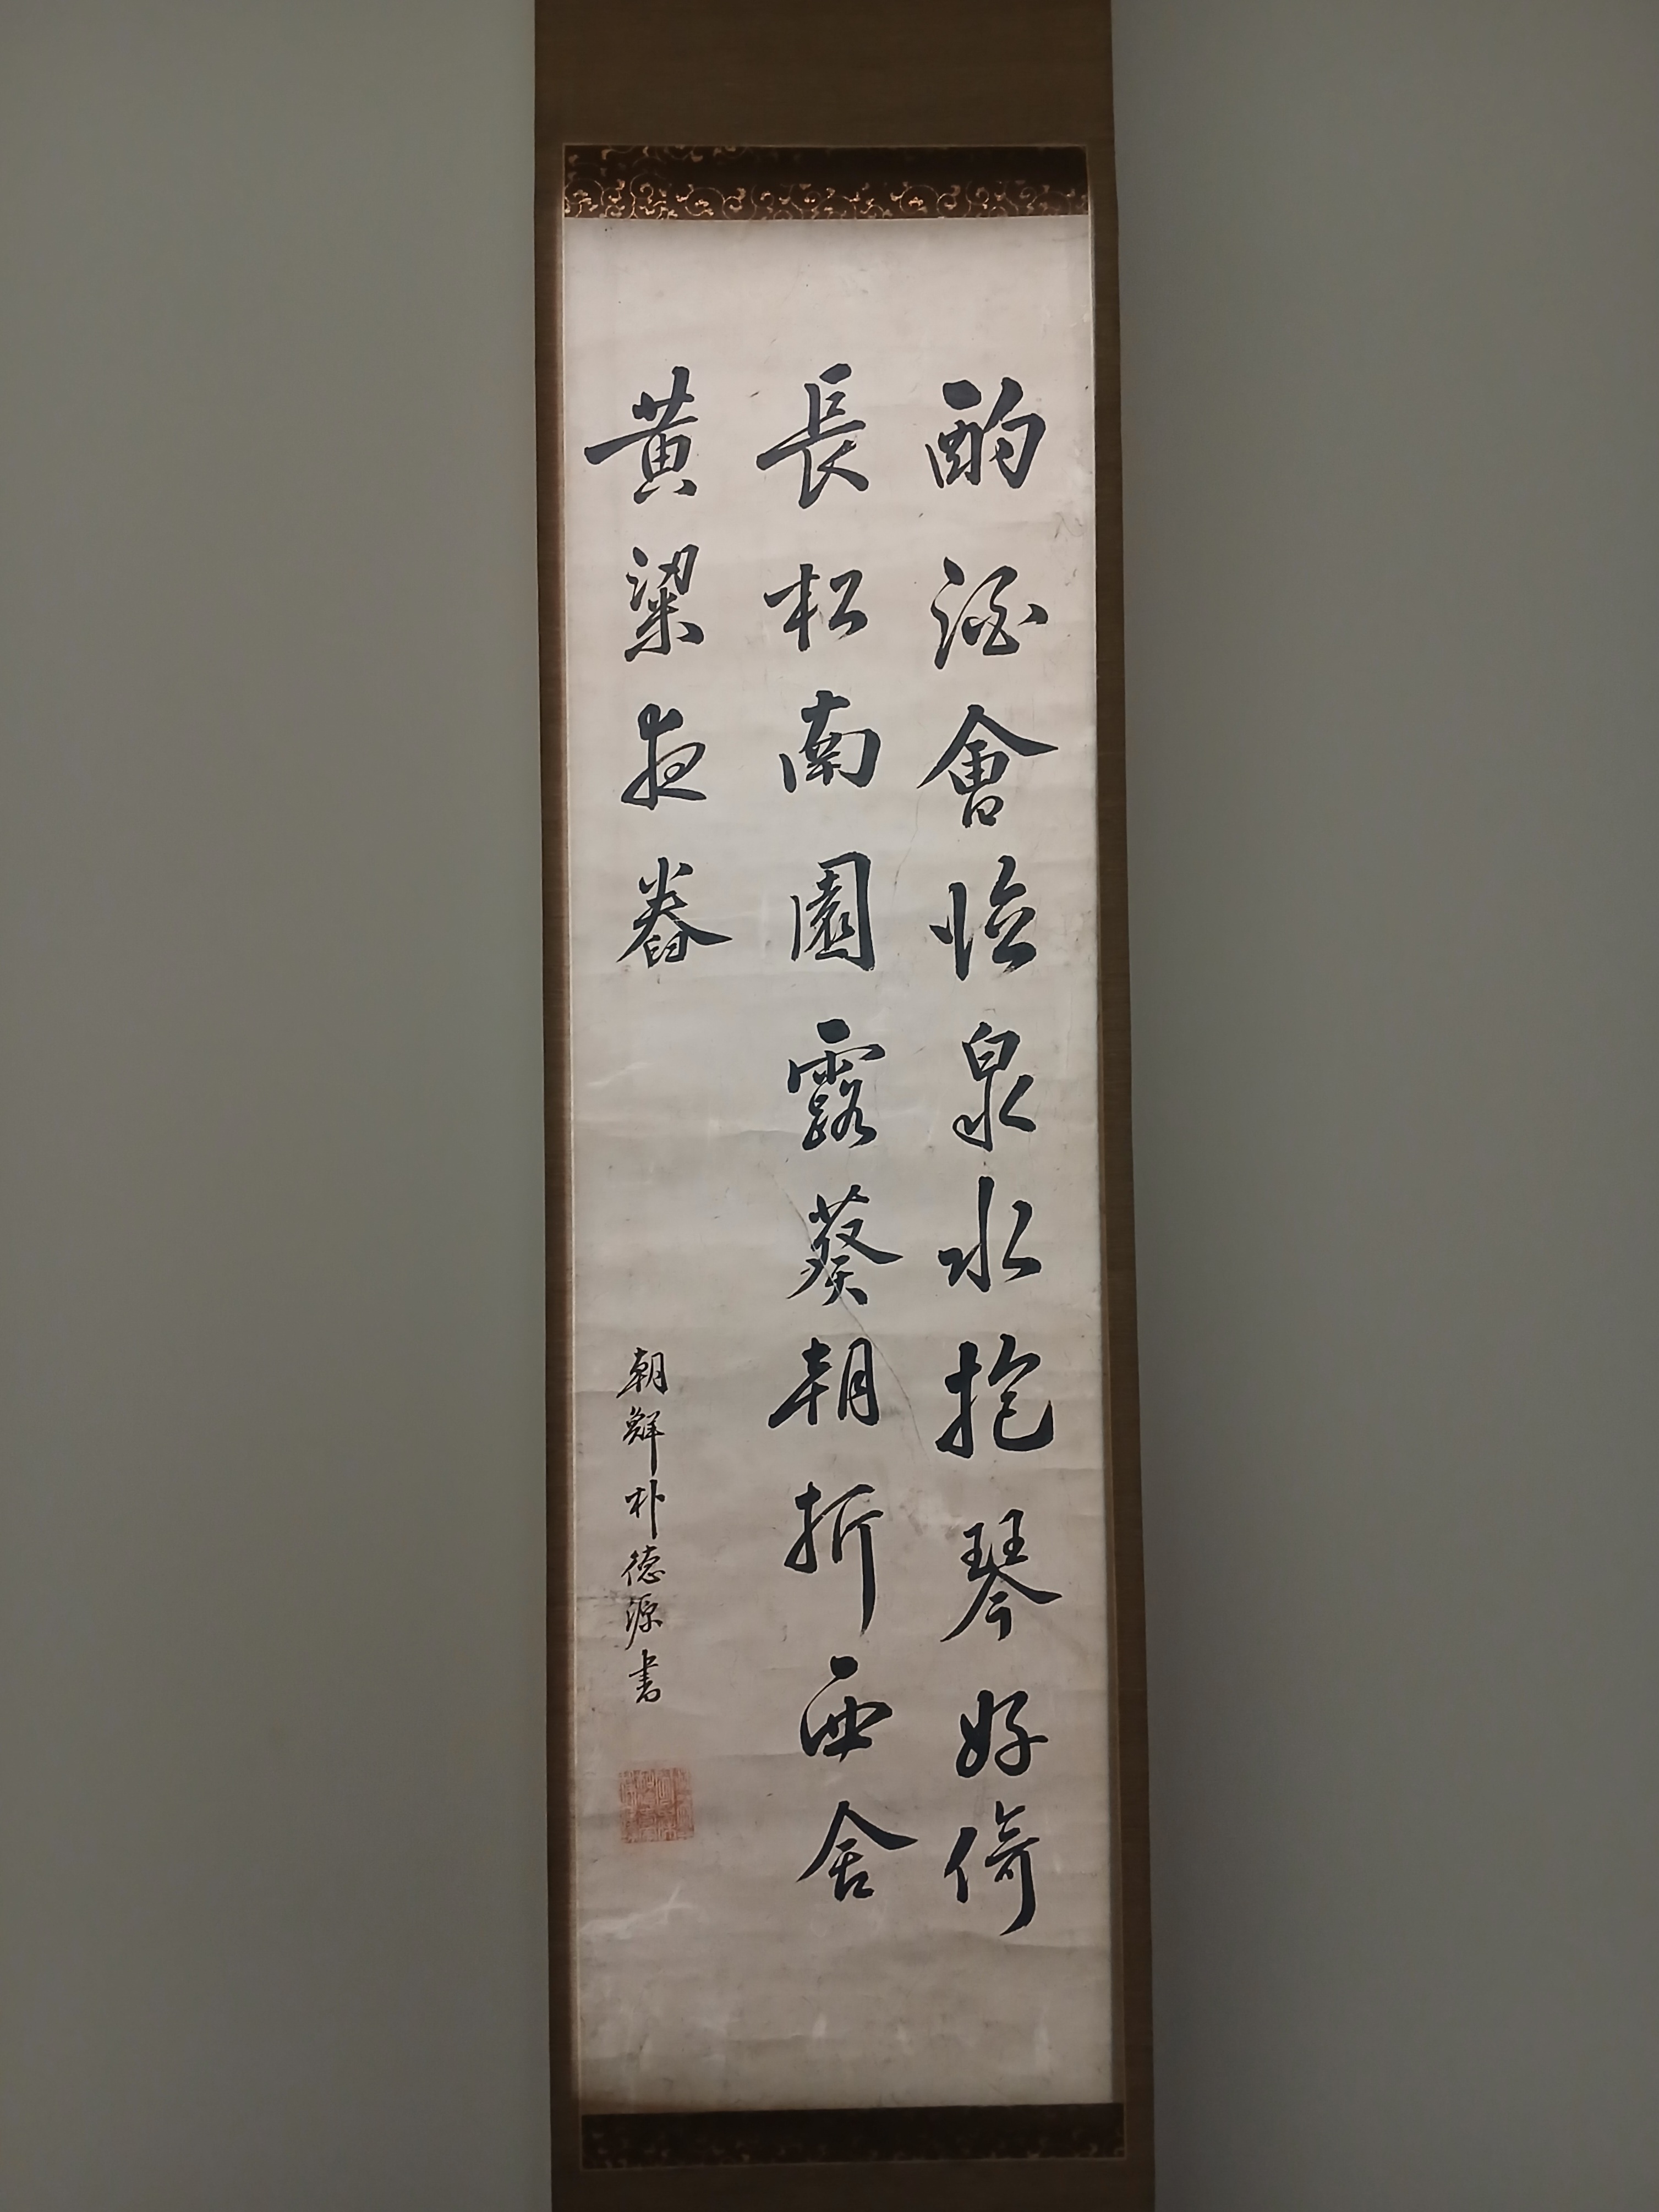 酌酒會臨泉水抱琴好倚
長松南園露葵朝折西舍
黄粱夜舂
朝鮮朴德源書